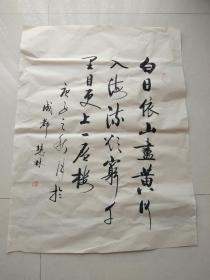 白日依山盡黄河
入海流欲窮千
里目更上一層樓
成都